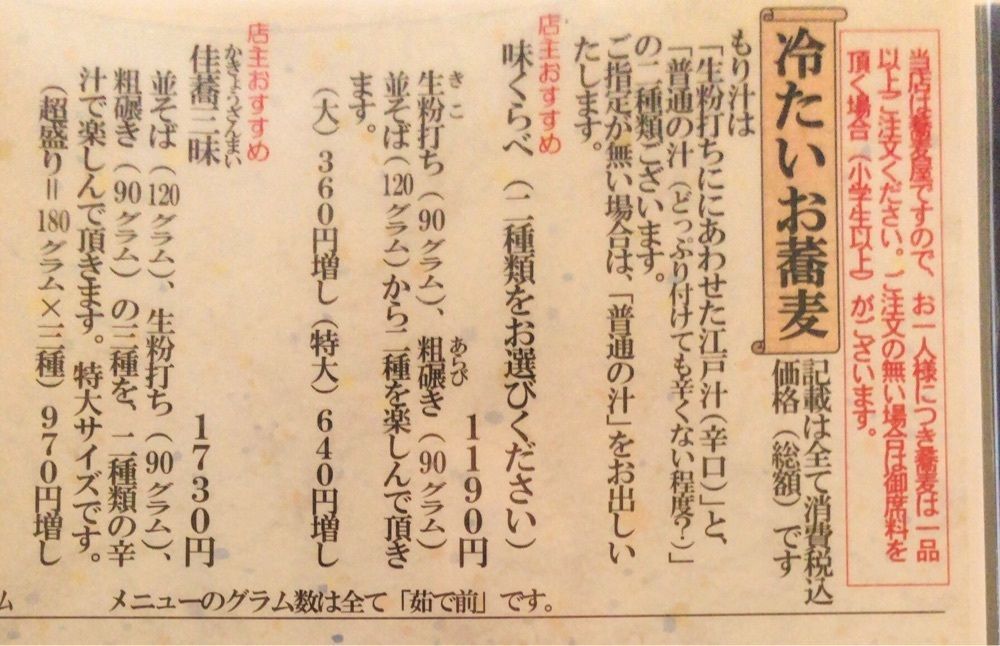 当店は蕎麦屋ですので、お一人様につき蕎麦は一品
以上ご注文ください。ご注文の無い場合は御席料を
頂く場合（小学生以上）がございます。
冷たいお蕎麦
記載は全て消費税込
価格（総額）です
もり汁は
「生粉打ちににあわせた江戸汁（辛口）」と、
「普通の汁（どっぷり付けても辛くない程度？）」
の二種類ございます。
ご指定が無い場合は、「普通の汁」をお出しい
たします。
店主おすすめ
味くらべ（二種類をお選びください）
1190円
きこ　あらび
生粉打ち（90グラム）、粗碾き（90グラム）
並そば（120グラム）から二種を楽しんで頂き
ます。
（大）360円増し（特大）640円増し
店主おすすめ
かきょうざんまい
佳蕎三昧
1730円
並そば（120グラム）、生粉打ち（90グラム）、
粗碾き（90グラム）の三種を、二種類の辛
汁で楽しんで頂きます。特大サイズです。
（超盛り＝180グラム×三種）970円増し
メニューのグラム数は全て「茹で前」です。
ム